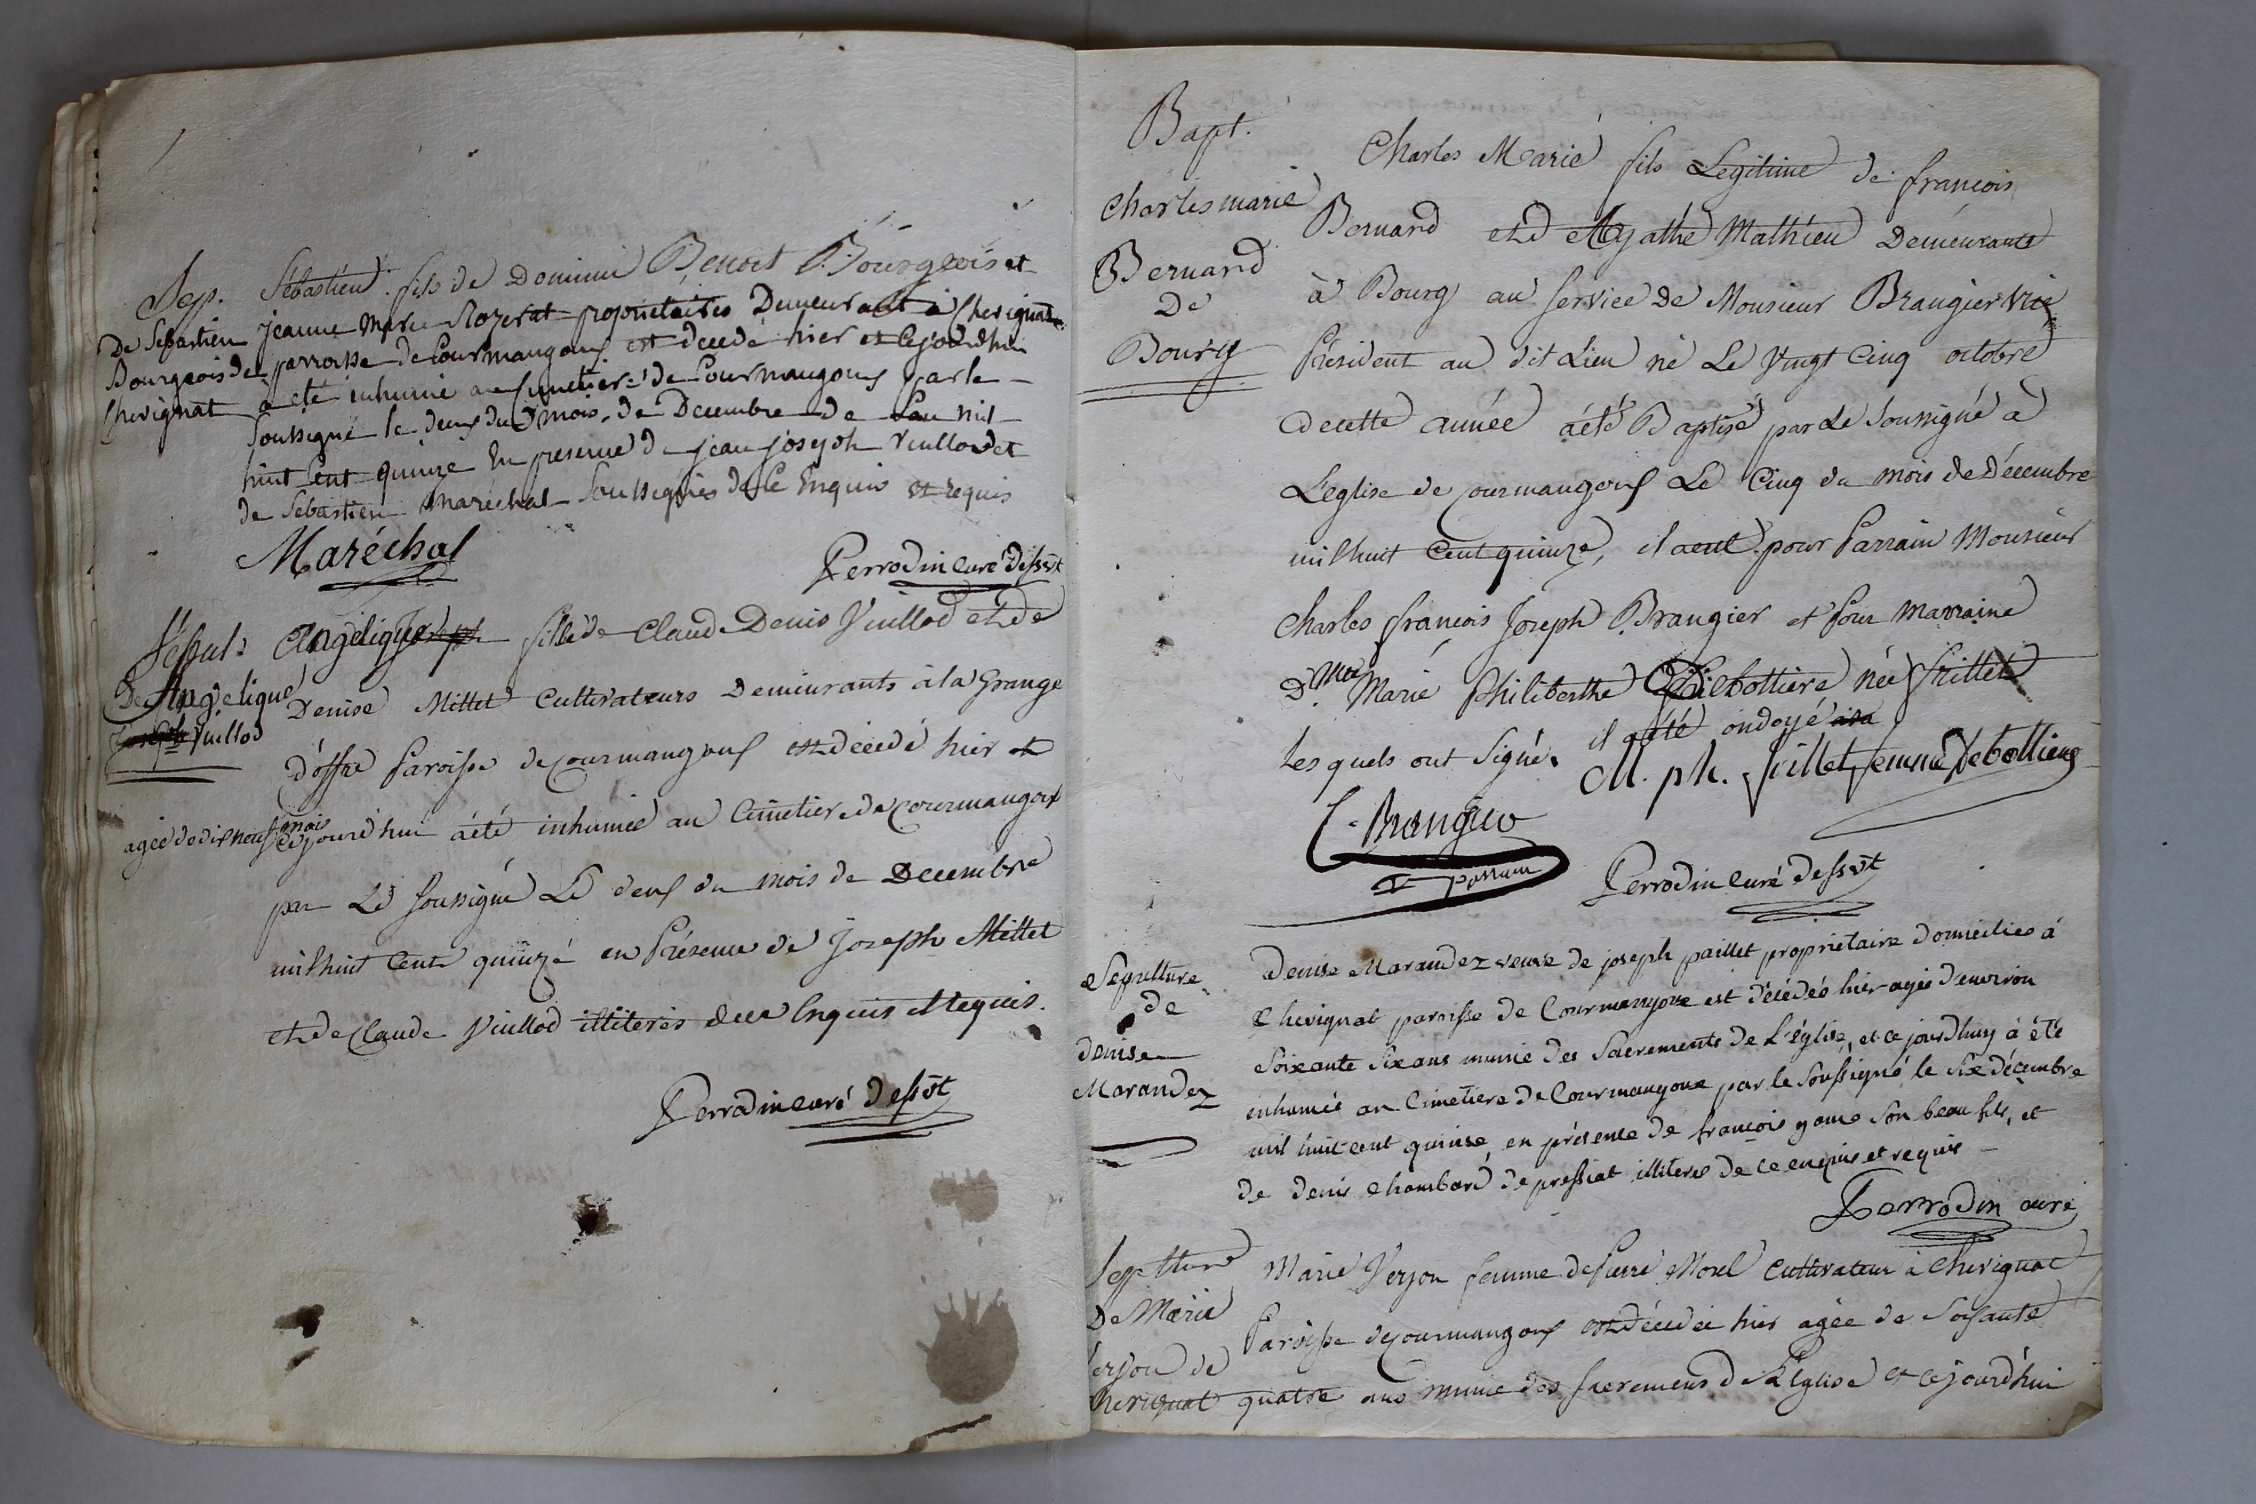 Sep.
De Sebastien
Bourgeois de
Cherignat
Sébastien fils de Dominic Benoit Bourgeois et
jeanne Marie Rozerat propriétaires Demeurant à Cherignat
parroisse de Courmangoux est decedé hier et Cejourdhui
a eté inhumé au Cimetiere de Courmangoux par le
soussigné le deux du mois de Decembre de L'an mil
huit cent quinze En presence de jean joseph Vuillod et
de Sébastien Maréchal Soussignés de ce Enquis et requis
Maréchal
Perrodin curé dessvt
Sepul:
De Angelique
Joseph Vuillod
agée de dix neuf mois
Angelique Joseph fille de Claude Denis Vuillod et de
Denise Millet Cultivateurs Demeurants à la Grange
d'offre Paroisse de Courmangoux est décedé hier et
cejourdhui à été inhumée au Cimetier de Courmangoux
par Le soussigné Le deux du mois de Decembre
mil huit Cent quinze en Présence de Joseph Millet
et de Claude Vuillod illiterés de ce Enquis et Requis.
Perrodin curé dessvt
Bapt.
Charles marie
Bernard
De
Bourg
Charles Marie fils Legitime de françois
Bernard et d'Agathe Mathieu Demeurants
à Bourg au service de Monsieur Brangier vice
Président au dit Lieu né Le Vingt Cinq octobre
de cette année à été Baptisé par Le Soussigné à
L'eglise de Courmangoux Le Cinq du mois de Décembre
mil huit Cent quinze, il a eut pour Parrain Monsieur
Charles françois Joseph Brangier et pour Marraine
D.me Marie Philiberthe Debottiere née frillet
il a été ondoyé
Les quels ont Signé.
M. ph. frillet femme Debottiere
C. Brangier
parrain
Perrodin curé dessvt
Sepulture
de
denise
Marandez
Denise Marandez veuve de joseph paillet propriétaire domiciliée à
Chevignat paroisse de Courmangoux est décédée hier agée d'environ
soixante six ans munie des Sacrements de L'église, et ce jourdhuy à été
inhumée au Cimetiere de Courmangoux par le Soussigné le Six décembre
mil huit cent quinse, en présence de françois gome son beau fils, et
de denis Chambard de pressiat illiteres de ce enquis et requis
Perrodin curé
Sepulture
De Marie
Verjon de
Cherignat
Marie Verjon femme de Pierre Morel Cultivateur à Cherignat
Paroisse de Courmangoux est décedée hier agée de soixante
quatre ans munie des sacremens de L'Eglise et Cejourd'hui